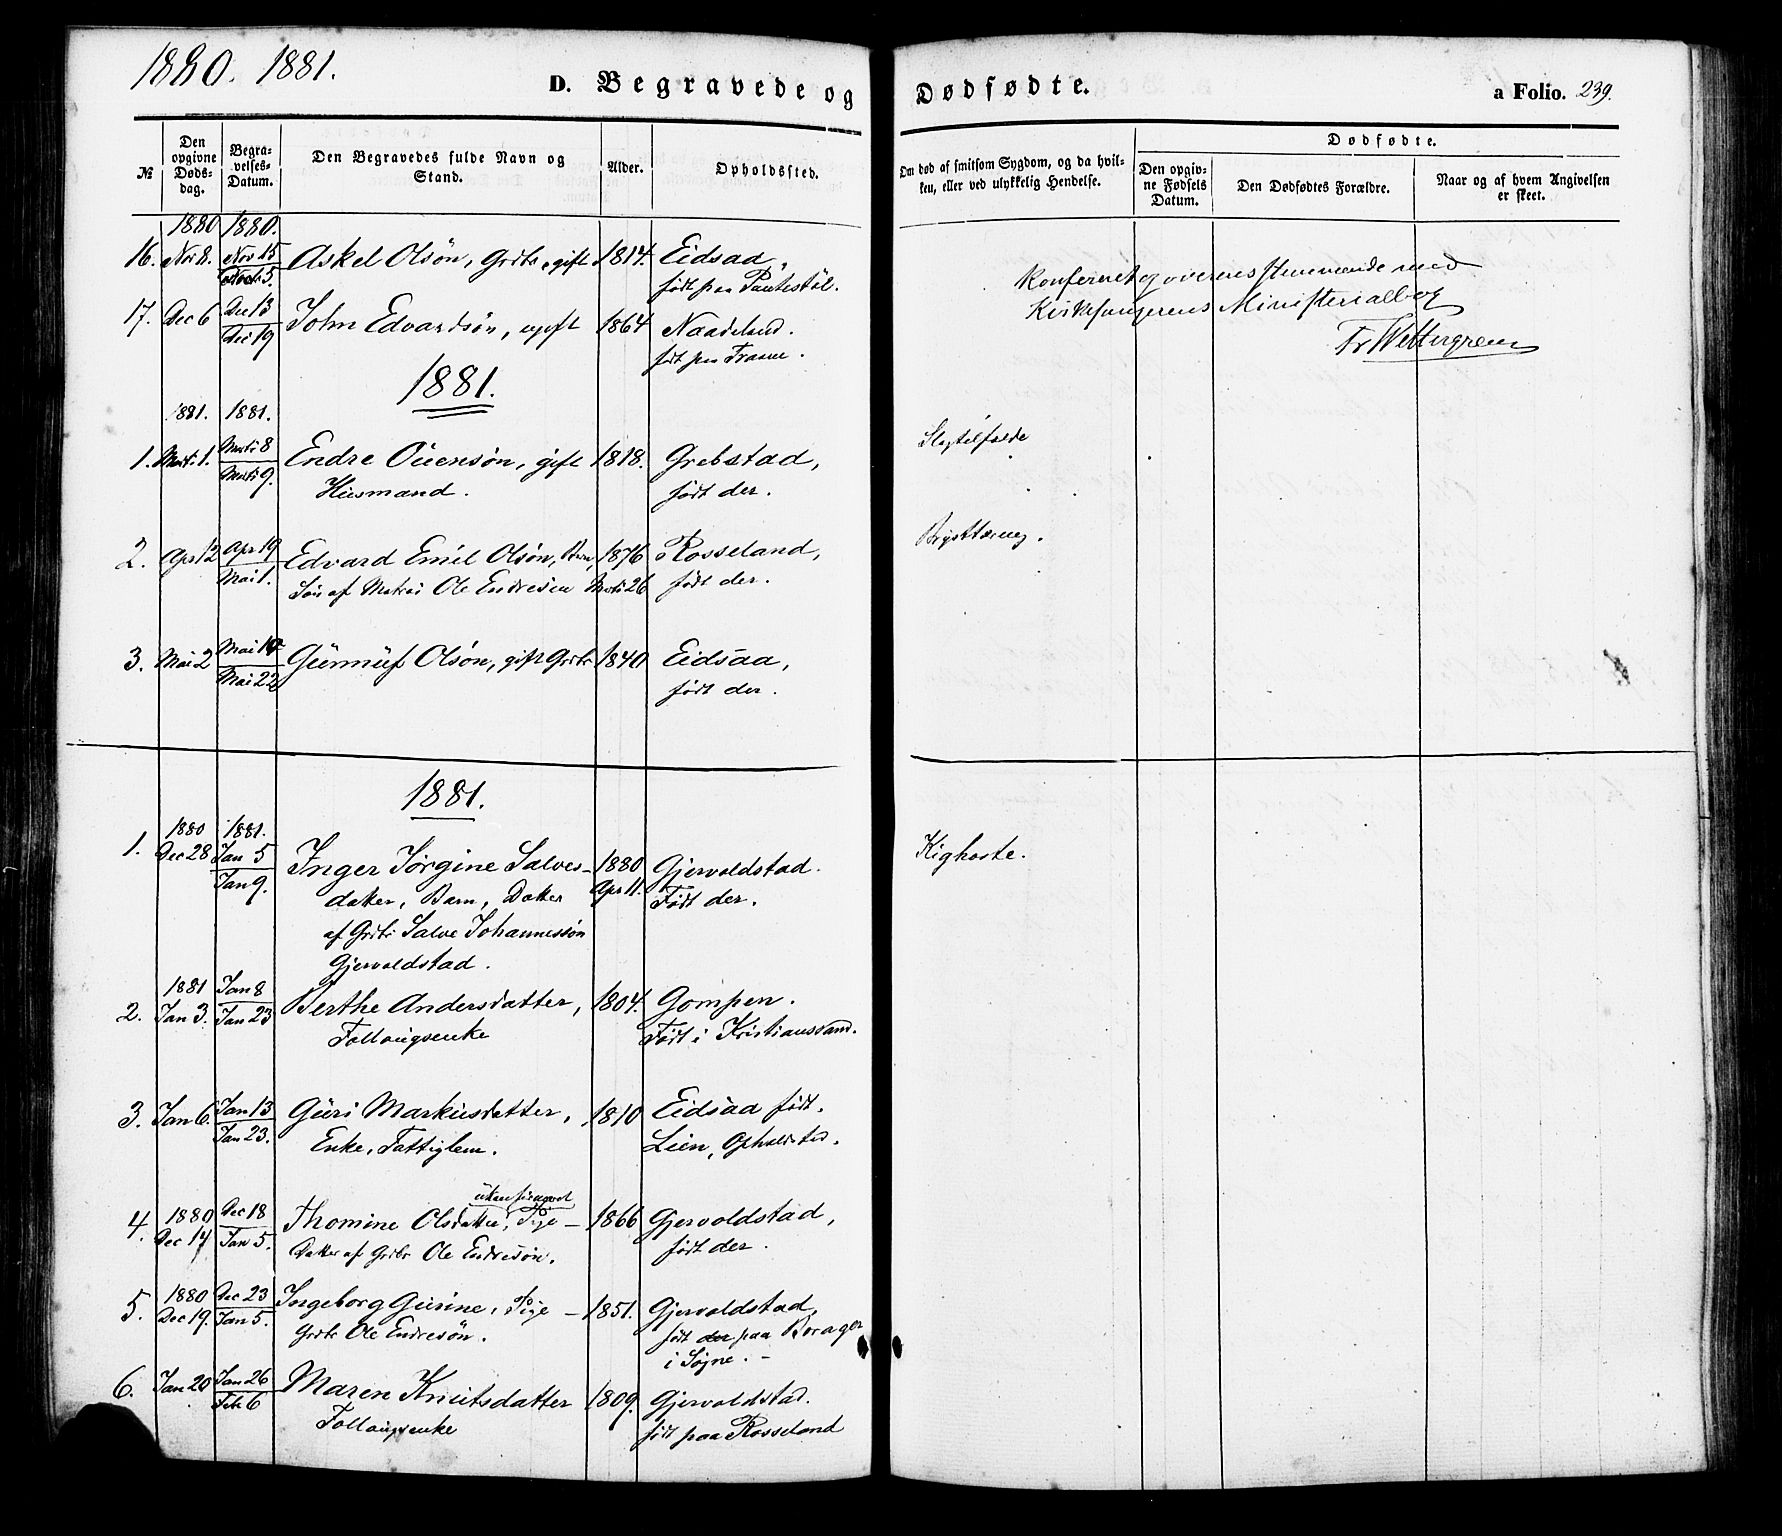 1880. 1881.
D. Begravede og Dødfødte.
a Folio. 239.
№
Den opgivne Dødsdag.
Begravelses-Datum.
Den Begravedes fulde Navn og Stand.
Alder.
Opholdssted.
Om død af smitsom Sygdom, og da hvilken, eller ved ulykkelig Hendelse.
Dødfødte.
Den opgivne Fødsels Datum.
Den Dødfødtes Forældre.
Naar og af hvem Angivelsen er skeet.
1880 1880.
16. Nov 8. Nov 15 Askel Olsön, Grbr, gift 1814. Eidsaa,
født paa
Konfereret og overensstemmende med
Kirkesangerens Ministerialbog
Fr Wettergreen
17. Dec 6 Dec 13 John Edvardsön, ugift 1864 Naadeland.
Dec 19 født paa
1881.
1881. 1881.
1. Marts 1. Marts 8 Endre Ouensön, gift 1818. Grebstad, Slagtilfælde
Marts 9. Huusmand. født der.
2. Apr 12 Apr 19 Edvard Emil Olsön, Barn, 1876 Rosseland, Brysttæring.
Mai 1. Søn af Matros Ole Endresen Marts 26 født der.
3. Mai 2 Mai 14 Gunnuf Olsön, gift Grbr 1840 Eidsaa,
Mai 22 født der.
1881.
1880 1881.
1. Dec 28 Jan 5 Inger Jørgine Salves- 1880 Gjervoldstad. Kighoste.
Jan 9. datter, Barn, Datter Apr 11. Født der.
af Grbr Salve Johannessön
Gjervoldstad.
1881 Jan 8
2. Jan 3. Jan 23 Berthe Andersdatter, 1804. Gompen.
Føllaugsenke Født i Kristianssand.
3. Jan 6. Jan 13 Guri Markusdatter, 1810 Eidsaa født.
Jan 23. Enke, Fattiglem. Lien, Opholdsted.
4. 1880 Dec 18 Thomine Olsdatter, Pige - 1866 Gjervoldstad,
Dec 14 Jan 5. Datter af Grbr Ole Endresön. født der.
5. 1880 Dec 23 Ingeborg Gurine, Pige - 1851. Gjervoldstad,
Dec 19. Jan 5. Grbr Ole Endresön. født der paa
i Søgne. -
6. Jan 20 Jan 26 Maren Knutsdatter 1809. Gjervoldstad.
Feb 6 Føllaugsenke født paa Rosseland